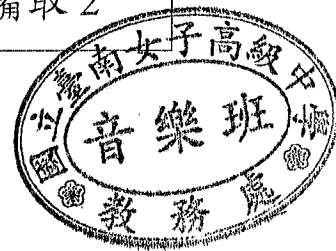 備取2
國立臺南女子高級中學
音樂班
教務處